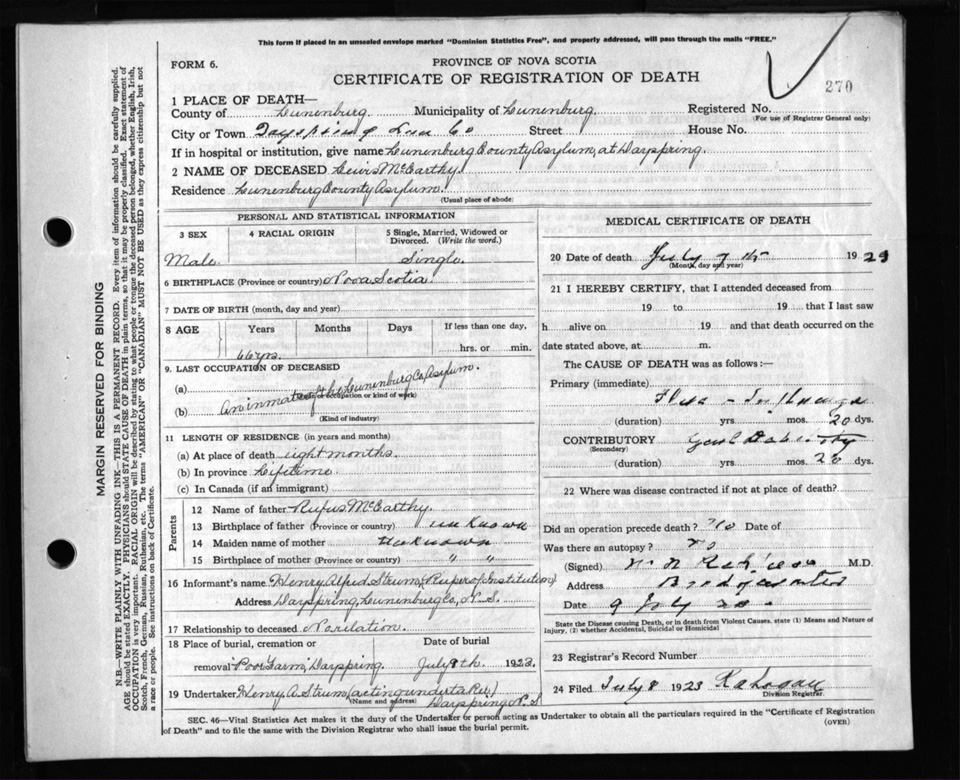 This form if placed in an unsealed envelope marked "Dominion Statistics Free", and properly addressed, will pass through the mails "FREE."
FORM 6.
PROVINCE OF NOVA SCOTIA
CERTIFICATE OF REGISTRATION OF DEATH
270
1 PLACE OF DEATH—
County of Lunenburg. Municipality of Lunenburg. Registered No.
For use of Registrar General only)
City or Town Dayspring Lun Co Street House No.
If in hospital or institution, give name Lunenburg County Asylum, at Dayspring.
2 NAME OF DECEASED Lewis McCarthy.
Residence Lunenburg County Asylum.
(Usual place of abode)
PERSONAL AND STATISTICAL INFORMATION
3 SEX 4 RACIAL ORIGIN 5 Single, Married, Widowed or Divorced. (Write the word.)
Male. Single.
6 BIRTHPLACE (Province or country) Nova Scotia
7 DATE OF BIRTH (month, day and year)
8 AGE Years Months Days If less than one day,
66 yrs. hrs. or min.
9. LAST OCCUPATION OF DECEASED
(a) (Trade or occupation or kind of work)
(b) An inmate of the Lunenburg Co, Asylum.
(Kind of industry)
11 LENGTH OF RESIDENCE (in years and months)
(a) At place of death eight months.
(b) In province Lifetime.
(c) In Canada (if an immigrant)
Parents
12 Name of father Rufus McCarthy.
13 Birthplace of father (Province or country) unknown
14 Maiden name of mother Unknown
15 Birthplace of mother (Province or country) " "
16 Informant's name Henry Alfred Strum, (Super of Institution)
Address Dayspring, Lunenburg Co, N. S.
17 Relationship to deceased No relation.
18 Place of burial, cremation or Date of burial
removal Poor Farm, Dayspring. July 8th. 1923.
19 Undertaker Henry A Strum (acting undertaker)
(Name and address) Dayspring N. S
MEDICAL CERTIFICATE OF DEATH
20 Date of death July 7 th 1923
(Month, day and year)
21 I HEREBY CERTIFY, that I attended deceased from
19 to 19 that I last saw
h alive on 19 and that death occurred on the
date stated above, at m.
The CAUSE OF DEATH was as follows:—
Primary (immediate)
Flu - Influenza
(duration) yrs mos. 20 dys.
CONTRIBUTORY Genl Debility
(Secondary)
(duration) yrs mos. 20 dys.
22 Where was disease contracted if not at place of death?
Did an operation precede death? no Date of
Was there an autopsy? no
(Signed) M.D.
Address Bridgewater
Date 9 July 23
State the Disease causing Death, or in death from Violent Causes, state (1) Means and Nature of
Injury, (2) whether Accidental, Suicidal or Homicidal
23 Registrar's Record Number
24 Filed July 8 1923
Division Registrar.
SEC. 46—Vital Statistics Act makes it the duty of the Undertaker or person acting as Undertaker to obtain all the particulars required in the "Certificate of Registration
of Death" and to file the same with the Division Registrar who shall issue the burial permit.
(OVER)
MARGIN RESERVED FOR BINDING
N.B.—WRITE PLAINLY WITH UNFADING INK—THIS IS A PERMANENT RECORD. Every item of information should be carefully supplied.
AGE should be stated EXACTLY. PHYSICIANS should STATE CAUSE OF DEATH in plain terms, so that it may be properly classified. Exact statement of
OCCUPATION is very important. RACIAL ORIGIN will be described by stating to what people or tongue the deceased person belonged, whether English, Irish,
Scotch, French, German, Russian, Ruthenian, etc. The terms "AMERICAN" OR "CANADIAN" MUST NOT BE USED as they express citizenship but not
a race or people. See instructions on back of Certificate.